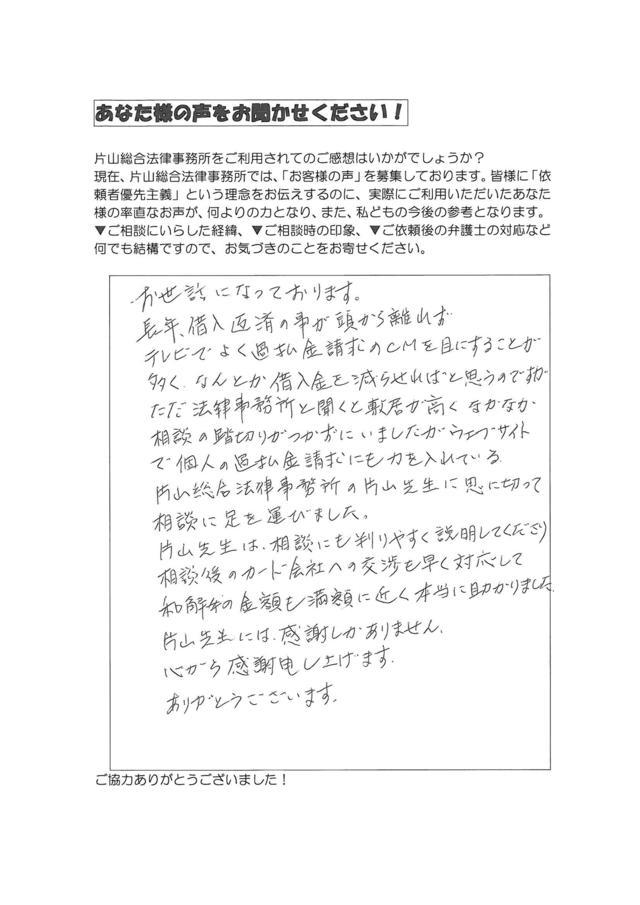 あなた様の声をお聞かせください！
片山総合法律事務所をご利用されてのご感想はいかがでしょうか？
現在、片山総合法律事務所では、「お客様の声」を募集しております。皆様に「依
頼者優先主義」という理念をお伝えするのに、実際にご利用いただいたあなた
様の率直なお声が、何よりの力となり、また、私どもの今後の参考となります。
▼ご相談にいらした経緯、▼ご相談時の印象、▼ご依頼後の弁護士の対応など
何でも結構ですので、お気づきのことをお寄せください。
お世話になっております。
長年、借入返済の事が頭から離れず
テレビでよく過払金請求のCMを目にすることが
多く、なんとか借入金を減らせればと思うのですが
ただ法律事務所と聞くと敷居が高くなかなか
相談の踏切りがつかずにいましたがウェブサイト
で個人の過払金請求にも力を入れている
片山総合法律事務所の片山先生に思い切って
相談に足を運びました。
片山先生は、相談にも判りやすく説明してくださり
相談後のカード会社への交渉も早く対応して
和解の金額も満額に近く本当に助かりました。
片山先生には、感謝しかありません。
心から感謝申し上げます。
ありがとうございます。
ご協力ありがとうございました！